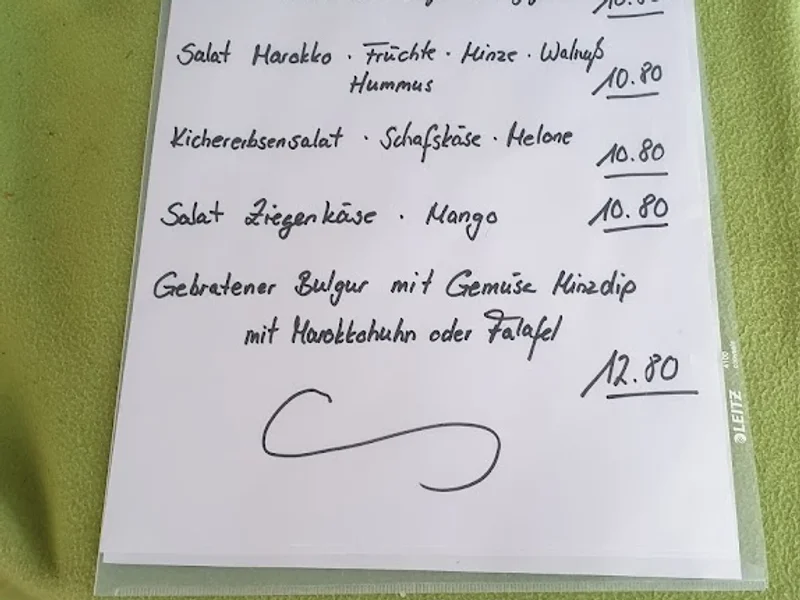 10.80
Salat Marokko · Früchte · Minze · Walnuß
Hummus
10.80
Kichererbsensalat · Schafskäse · Melone
10.80
Salat Ziegenkäse · Mango
10.80
Gebratener Bulgur mit Gemüse Minzdip
mit Marokkohuhn oder Falafel
12.80
LEITZ